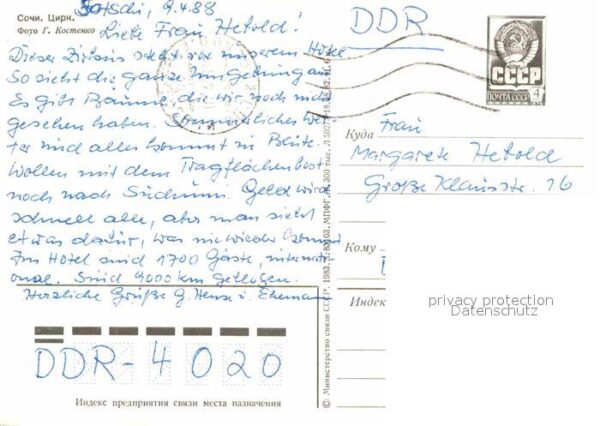 Сочи. Цирк.
Фото Г. Костенко
Sotschi, 9.4.88
Liebe Frau Hetold!
Dieser Zirkus steht vor unserem Hotel
So sieht die ganze Umgebung aus
Es gibt Bäume, die wir noch nicht
gesehen haben. Sommerliches Wet-
ter und alles kommt in Blüte.
Wollen mit dem Tragflächenboot
noch nach Suchumi. Geld wird
schnell alle, aber man sieht
etwas dafür, was nie wieder kommt
Im Hotel sind 1700 Gäste, internati
onal. Sind 4000 km geflogen.
Herzliche Grüße G. Hense u. Ehemann
DDR
СССР
ПОЧТА СССР
4
Куда
Frau
Margarete Hetold
Große Klausstr. 16
Кому
Индекс
privacy protection
Datenschutz
DDR-4020
Индекс предприятия связи места назначения